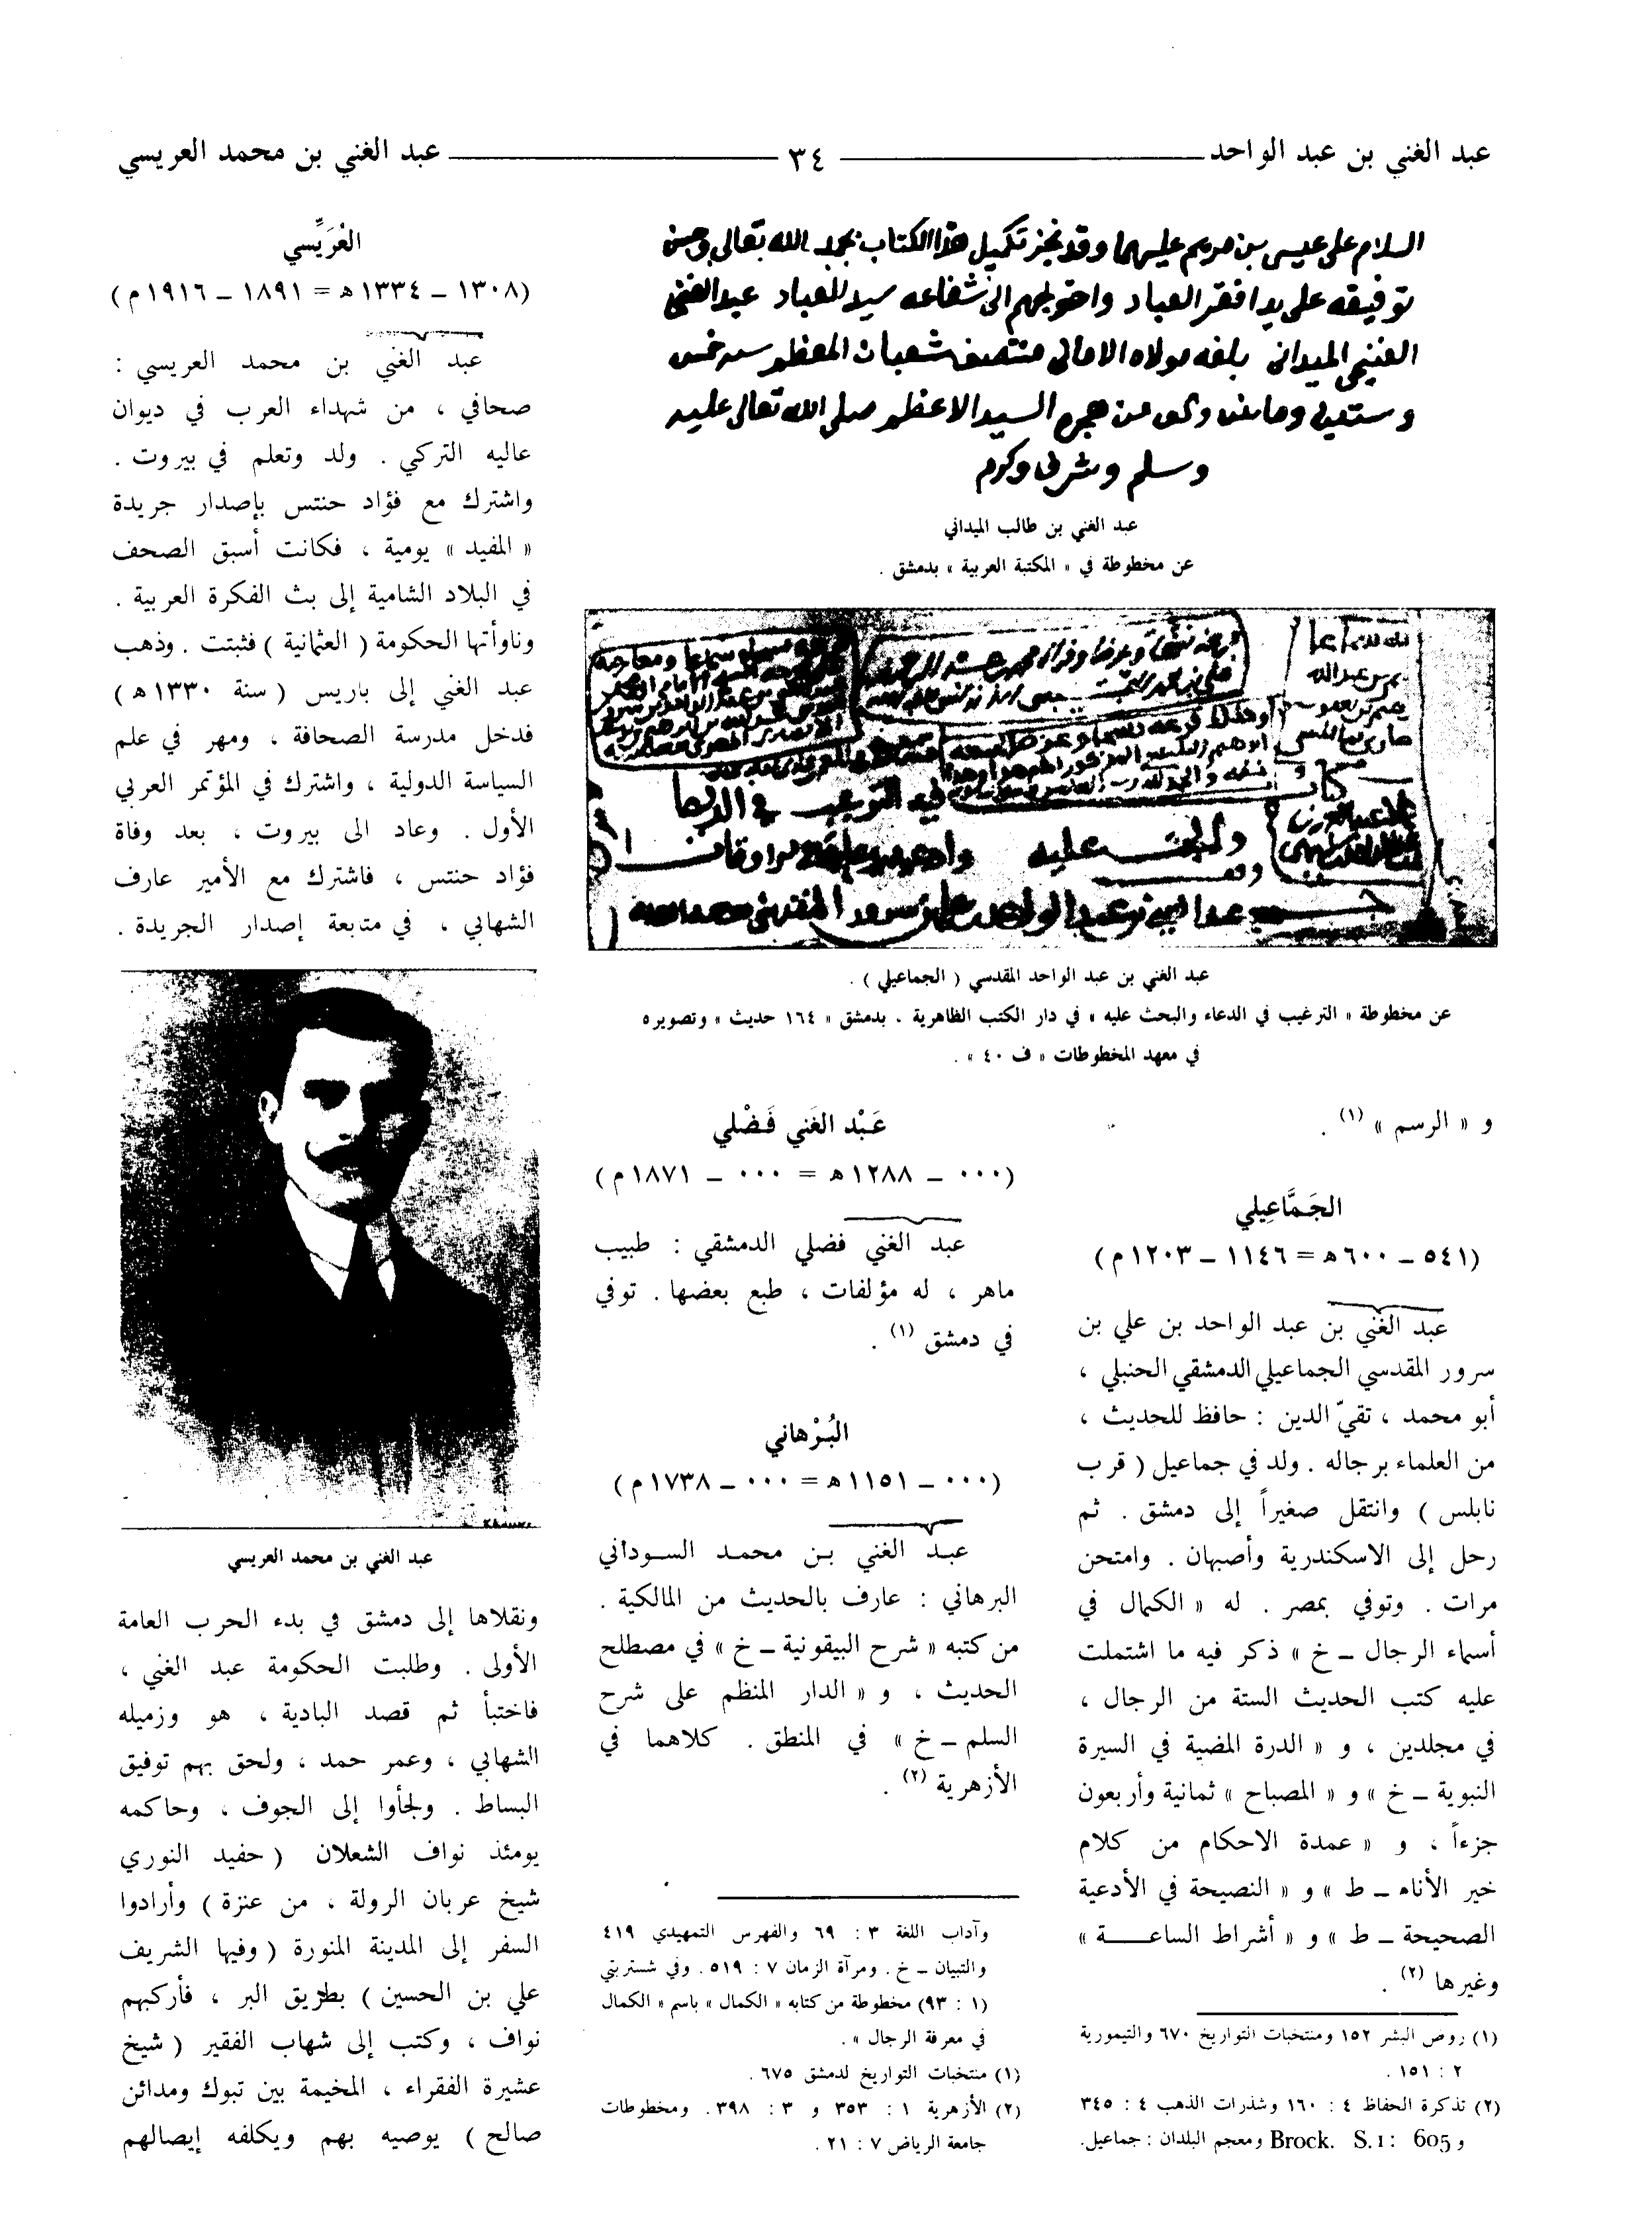 عبد الغني بن عبد الواحد ٣٤ عبد الغني بن محمد العريسي
السلام على عيسى بن مريم عليهما وقد نجز تكميل هذا الكتاب بحمد الله تعالى وحسن
توفيقه على يد افقر العباد واحوجهم الى شفاعه سيد العباد عبد الغني
الغنيمي الميداني بلغه مولاه الاماني منتصف شعبان المعظم سنه خمس
وستين وماىتين والف من هجرة السيد الاعظم صلى الله تعالى عليه
وسلم وشرف وكرم
عبد الغني بن طالب الميداني
عن مخطوطة في « المكتبة العربية » بدمشق .
فيه الترغيب في الدعا
والحث عليه
عبد الغني بن عبد الواحد بن علي بن سرور المقدسي
عبد الغني بن عبد الواحد المقدسي ( الجماعيلي ) .
عن مخطوطة « الترغيب في الدعاء والبحث عليه » في دار الكتب الظاهرية . بدمشق « ١٦٤ حديث » وتصويره
في معهد المخطوطات « ف ٤٠ » .
و « الرسم » (١) .
الجَمَّاعِيلي
(٥٤١ – ٦٠٠ ه = ١١٤٦ – ١٢٠٣ م)
عبد الغني بن عبد الواحد بن علي بن
سرور المقدسي الجماعيلي الدمشقي الحنبلي ،
أبو محمد ، تقيّ الدين : حافظ للحديث ،
من العلماء برجاله . ولد في جماعيل ( قرب
نابلس ) وانتقل صغيراً إلى دمشق . ثم
رحل إلى الاسكندرية وأصبهان . وامتحن
مرات . وتوفي بمصر . له « الكمال في
أسماء الرجال – خ » ذكر فيه ما اشتملت
عليه كتب الحديث الستة من الرجال ،
في مجلدين ، و « الدرة المضية في السيرة
النبوية – خ » و « المصباح » ثمانية وأربعون
جزءاً ، و « عمدة الاحكام من كلام
خير الأنام – ط » و « النصيحة في الأدعية
الصحيحة – ط » و « أشراط الساعة »
وغيرها (٢) .
(١) روض البشر ١٥٢ ومنتخبات التواريخ ٦٧٠ والتيمورية
٢ : ١٥١ .
(٢) تذكرة الحفاظ ٤ : ١٦٠ وشذرات الذهب ٤ : ٣٤٥
و Brock. S. I : 605 ومعجم البلدان : جماعيل.
عَبْد الغَني فَضْلي
(٠٠٠ – ١٢٨٨ ه = ٠٠٠ – ١٨٧١ م)
عبد الغني فضلي الدمشقي : طبيب
ماهر ، له مؤلفات ، طبع بعضها . توفي
في دمشق (١) .
البُرْهاني
(٠٠٠ – ١١٥١ ه = ٠٠٠ – ١٧٣٨ م)
عبد الغني بن محمد السوداني
البرهاني : عارف بالحديث من المالكية .
من كتبه « شرح البيقونية – خ » في مصطلح
الحديث ، و « الدار المنظم على شرح
السلم – خ » في المنطق . كلاهما في
الأزهرية (٢) .
وآداب اللغة ٣ : ٦٩ والفهرس التمهيدي ٤١٩
والتبيان – خ . ومرآة الزمان ٧ : ٥١٩ . وفي شستربتي
(١ : ٩٣) مخطوطة من كتابه « الكمال » باسم « الكمال
في معرفة الرجال » .
(١) منتخبات التواريخ لدمشق ٦٧٥ .
(٢) الأزهرية ١ : ٣٥٣ و ٣ : ٣٩٨ . ومخطوطات
جامعة الرياض ٧ : ٢١ .
العُرَيِّسي
(١٣٠٨ – ١٣٣٤ ه = ١٨٩١ – ١٩١٦ م)
عبد الغني بن محمد العريسي :
صحافي ، من شهداء العرب في ديوان
عاليه التركي . ولد وتعلم في بيروت .
واشترك مع فؤاد حنتس بإصدار جريدة
« المفيد » يومية ، فكانت أسبق الصحف
في البلاد الشامية إلى بث الفكرة العربية .
وناوأتها الحكومة ( العثمانية ) فثبتت . وذهب
عبد الغني إلى باريس ( سنة ١٣٣٠ ه )
فدخل مدرسة الصحافة ، ومهر في علم
السياسة الدولية ، واشترك في المؤتمر العربي
الأول . وعاد الى بيروت ، بعد وفاة
فؤاد حنتس ، فاشترك مع الأمير عارف
الشهابي ، في متابعة إصدار الجريدة .
عبد الغني بن محمد العريسي
ونقلاها إلى دمشق في بدء الحرب العامة
الأولى . وطلبت الحكومة عبد الغني ،
فاختبأ ثم قصد البادية ، هو وزميله
الشهابي ، وعمر حمد ، ولحق بهم توفيق
البساط . ولجأوا إلى الجوف ، وحاكمه
يومئذ نواف الشعلان ( حفيد النوري
شيخ عربان الرولة ، من عنزة ) وأرادوا
السفر إلى المدينة المنورة ( وفيها الشريف
علي بن الحسين ) بطريق البر ، فأركبهم
نواف ، وكتب إلى شهاب الفقير ( شيخ
عشيرة الفقراء ، المخيمة بين تبوك ومدائن
صالح ) يوصيه بهم ويكلفه إيصالهم